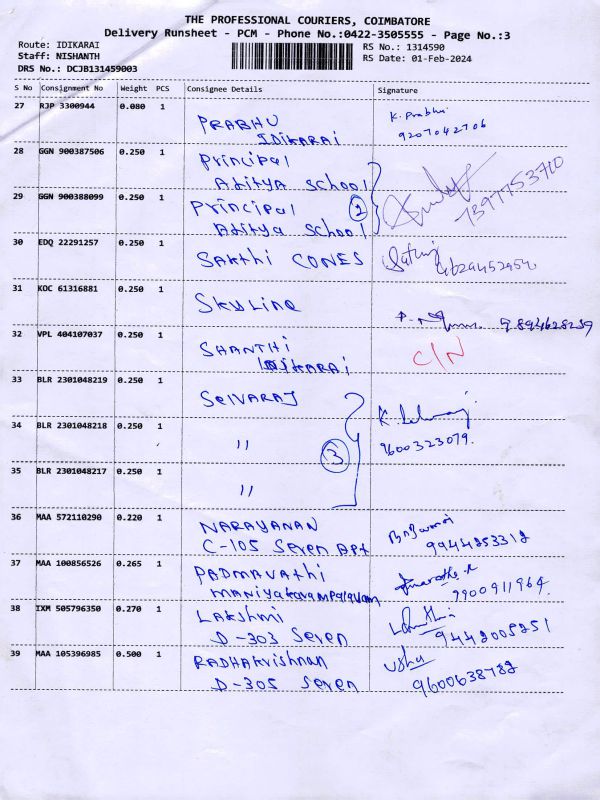 THE PROFESSIONAL COURIERS, COIMBATORE
Delivery Runsheet - PCM - Phone No.:0422-3505555 - Page No.:3
Route: IDIKARAI
Staff: NISHANTH
DRS No.: DCJB131459003
RS No.: 1314590
RS Date: 01-Feb-2024
S No Consignment No Weight PCS Consignee Details Signature
27 RJP 3300944 0.080 1 PRABHU K. Prabhu
IDIKARAI 9207042706
28 GGN 900387506 0.250 1 Principal
Aditya School
29 GGN 900388099 0.250 1 Principal 2 7397753710
Aditya School
30 EDQ 22291257 0.250 1 SAKTHI CONES
31 KOC 61316881 0.250 1 SkyLine 9894628239
32 VPL 404107037 0.250 1 SHANTHI C/N
IDIKARAI
33 BLR 2301048219 0.250 1 SelVARAJ
34 BLR 2301048218 0.250 1 " 3 9600323079.
35 BLR 2301048217 0.250 1 "
36 MAA 572110290 0.220 1 NARAYANAN
C-105 Seven Apt 9944253312
37 MAA 100856526 0.265 1 PADMAVAthi
maniyakarampalayam 7900911964.
38 IXM 505796350 0.270 1 LAKShmi
D-303 Seven 9442005251
39 MAA 105396985 0.500 1 RADHAKrishnan Usha
D-305 Seven 9600638782